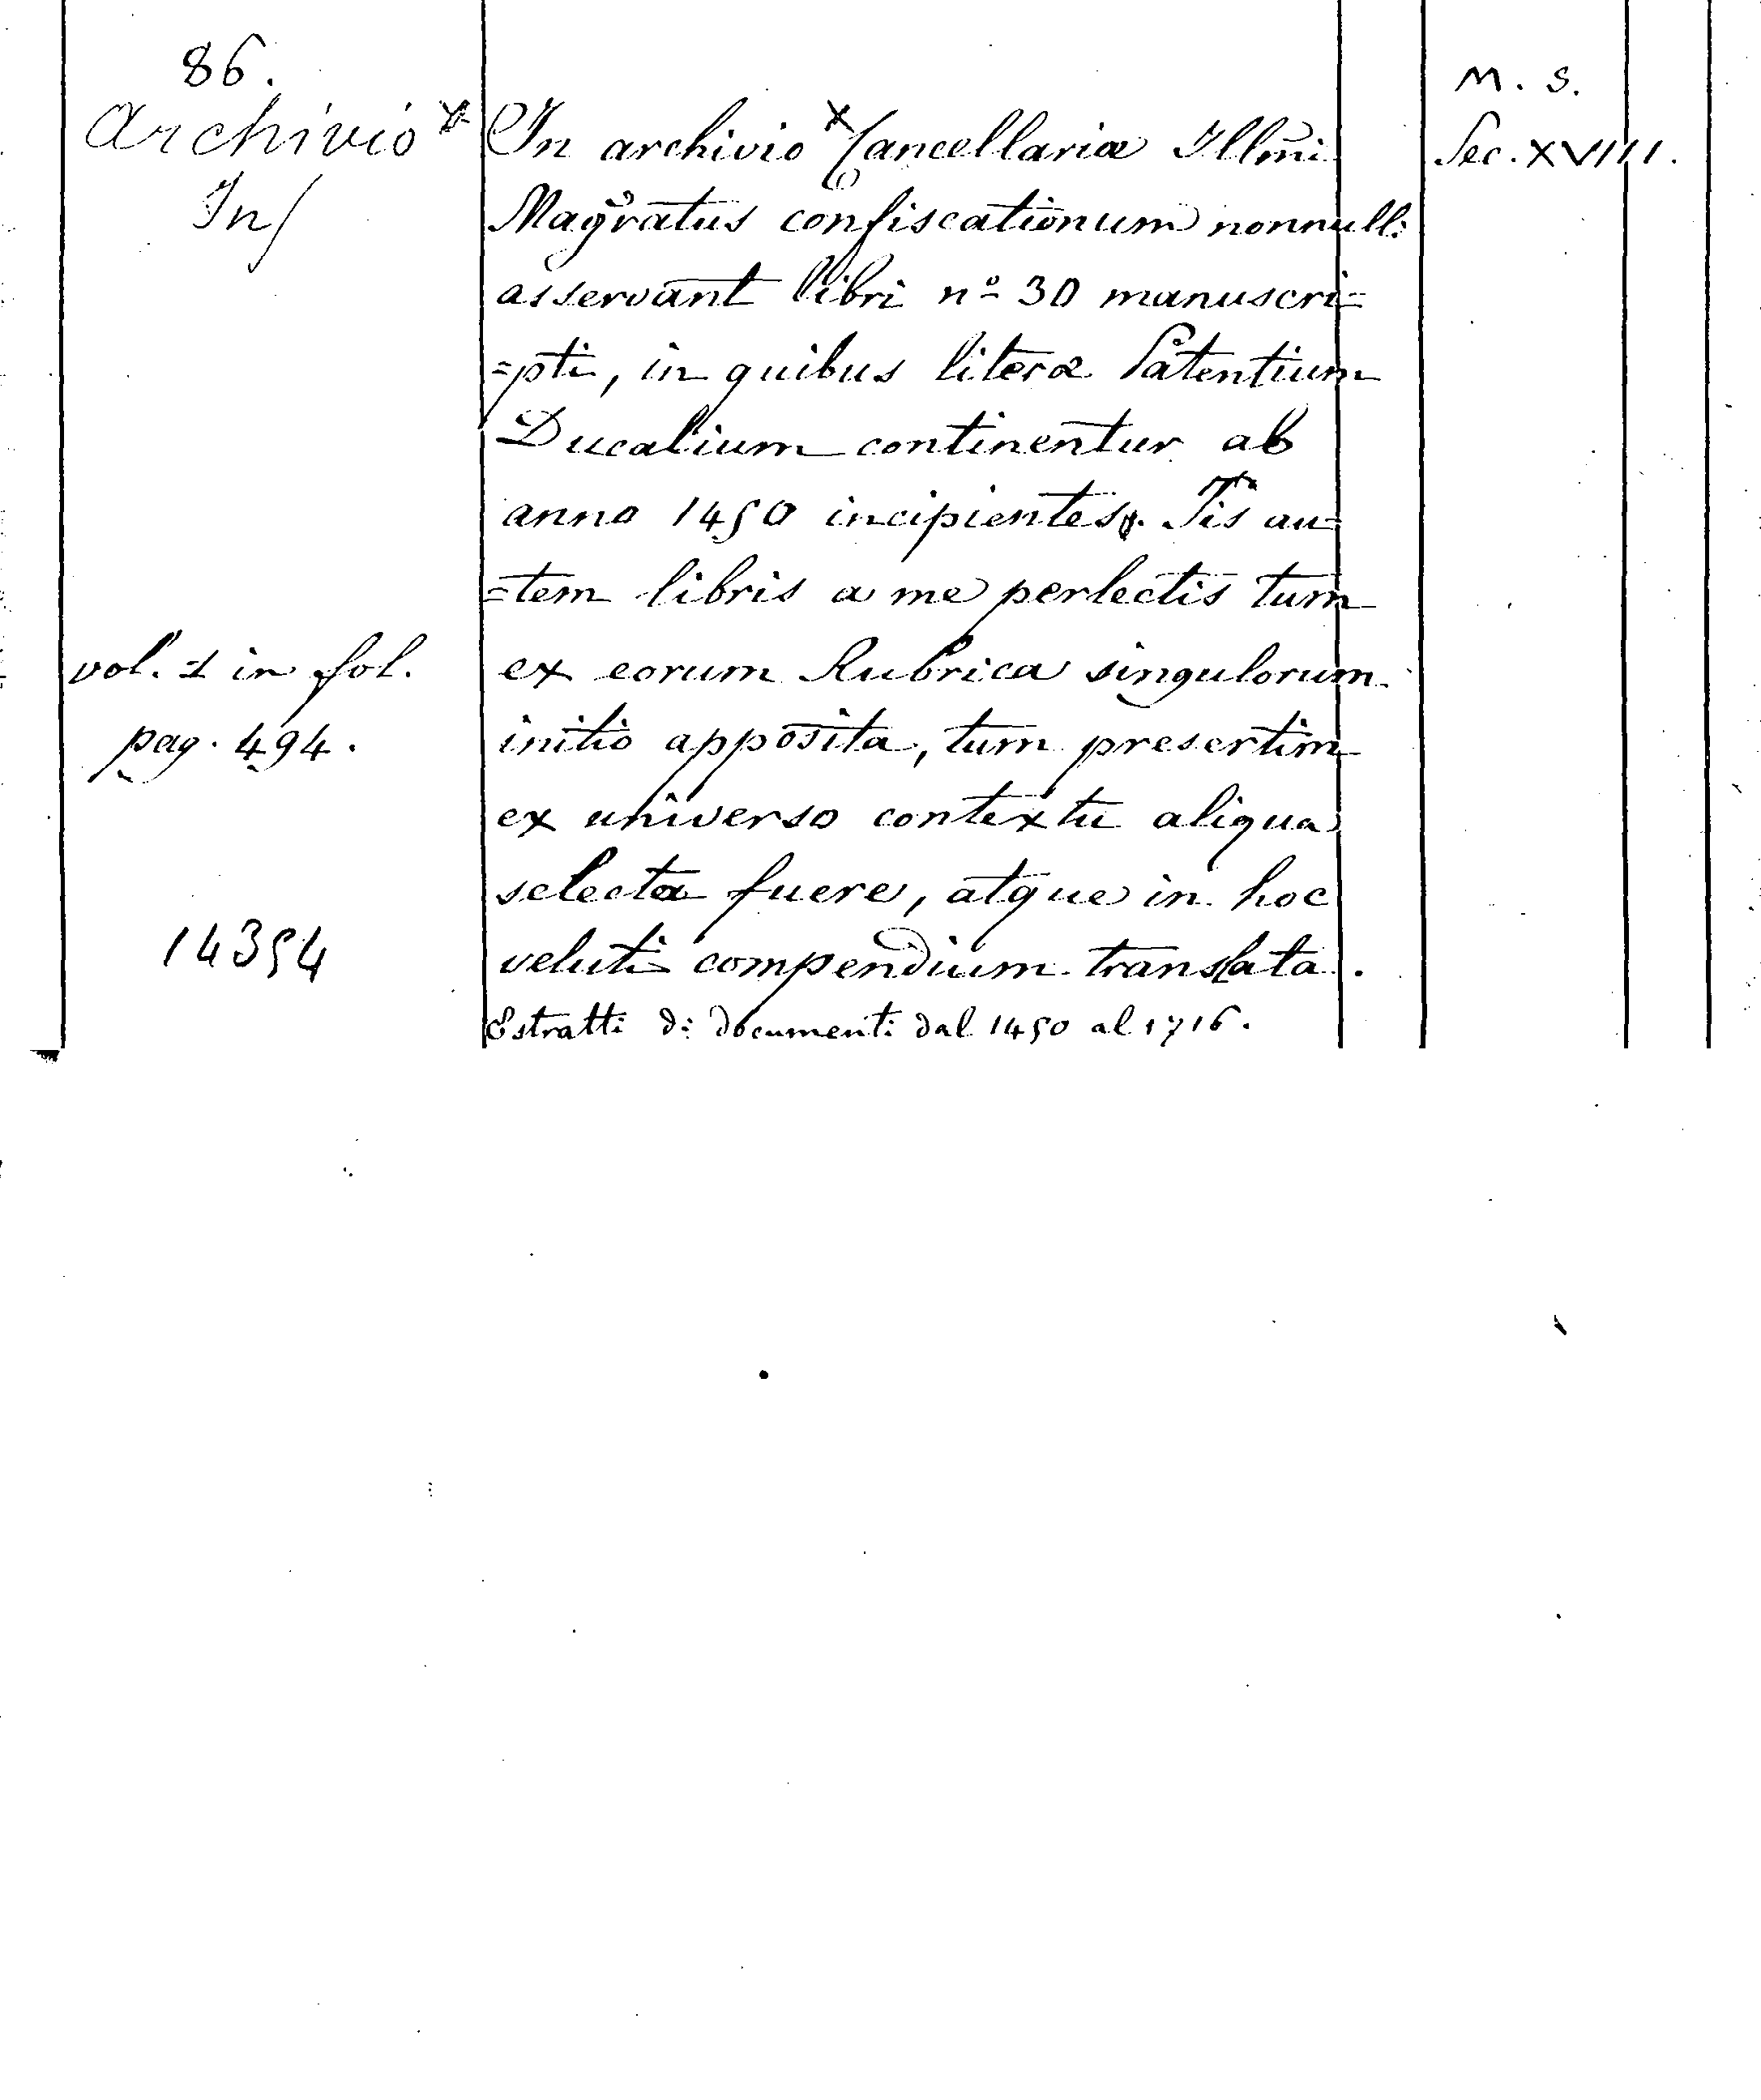 86.
Archivio x
In/
vol. 1 in fol.
pag. 494.
14354
In archivio x Cancellariæ Illm̄i
Mag̃ratus confiscationum nonnulli
asservant libri nº 30 manuscri=
=pti, in quibus literæ Patentium
Ducalium continentur ab
anno 1450 incipientes. His au=
=tem libris a me perlectis tum
ex eorum Rubrica singulorum
initio apposita, tum presertim
ex universo contextu aliqua
selecta fuere, atque in hoc
veluti compendium translata.
Estratti di documenti dal 1450 al 1716.
M. S.
Sec. XVIII.